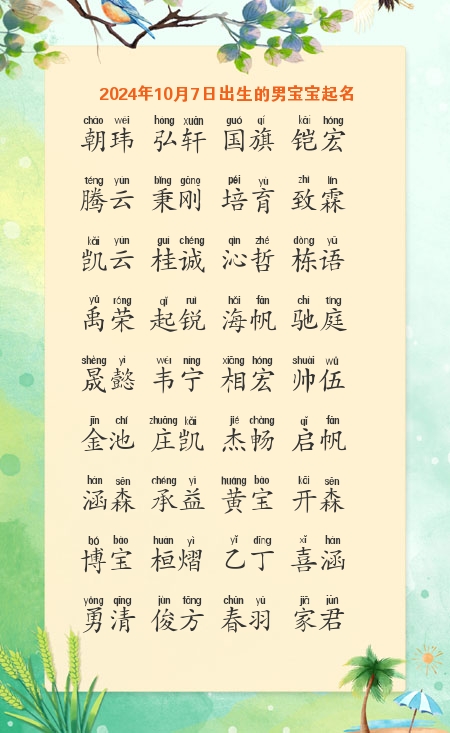 2024年10月7日出生的男宝宝起名
cháo wěi hóng xuān guó qí kǎi hóng
朝玮 弘轩 国旗 铠宏
téng yún bǐng gāng péi yù zhì lín
腾云 秉刚 培育 致霖
kǎi yún guì chéng qìn zhé dòng yǔ
凯云 桂诚 沁哲 栋语
yǔ róng qǐ ruì hǎi fān chí tíng
禹荣 起锐 海帆 驰庭
shèng yì wéi níng xiāng hóng shuài wǔ
晟懿 韦宁 相宏 帅伍
jīn chí zhuāng kǎi jié chàng qǐ fān
金池 庄凯 杰畅 启帆
hán sēn chéng yì huáng bǎo kāi sēn
涵森 承益 黄宝 开森
bó bǎo huán yì yǐ dīng xǐ hán
博宝 桓熠 乙丁 喜涵
yǒng qīng jùn fāng chūn yǔ jiā jūn
勇清 俊方 春羽 家君